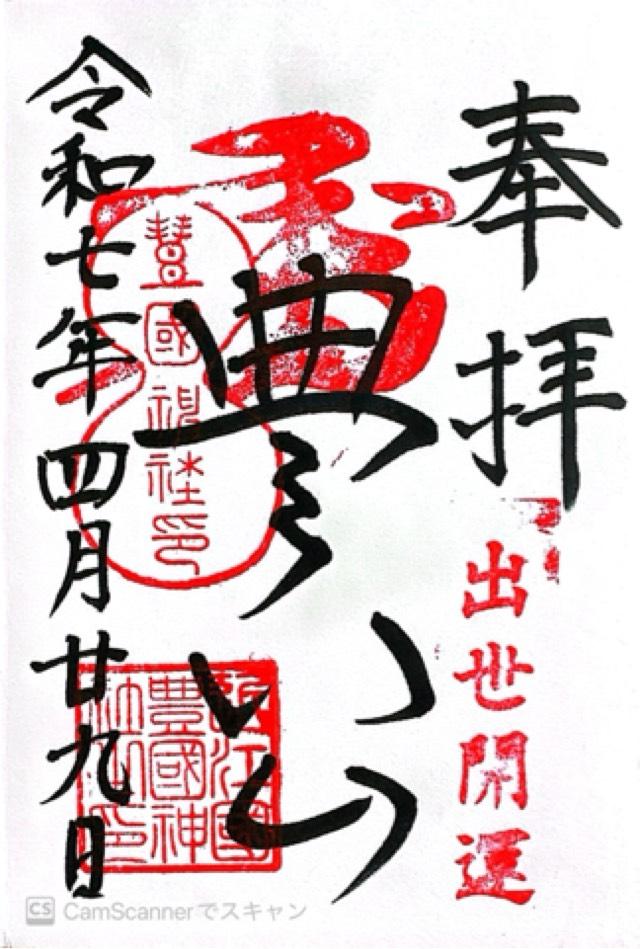 奉拝
出世開運
豊國神社印
近江國
豊國神
社之印
令和七年四月廿九日
CamScannerでスキャン